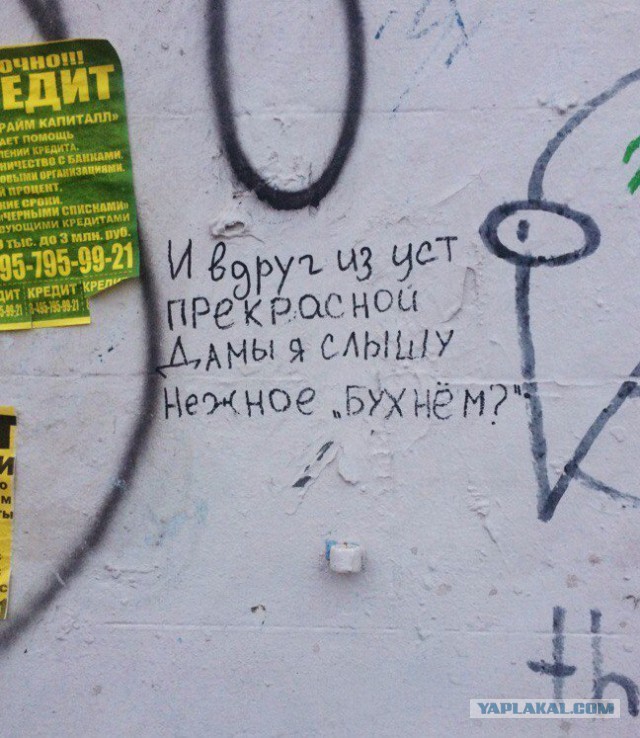 ОЧНО!!!
ЕДИТ
РАЙМ КАПИТАЛЛ»
АЕТ ПОМОЩЬ
ЛЕНИИ КРЕДИТА.
НИЧЕСТВО С БАНКАМИ,
ОВЫМИ ОРГАНИЗАЦИЯМИ.
Й ПРОЦЕНТ.
КИЕ СРОКИ.
«ЧЕРНЫМИ СПИСКАМИ»
ВУЮЩИМИ КРЕДИТАМИ
ТЫС. ДО 3 МЛН. РУБ.
95-795-99-21
ДИТ КРЕДИТ КРЕДИ
И вдруг из уст
прекрасной
Дамы я слышу
Нежное „Бухнём?"
th
YAPLAKAL.COM